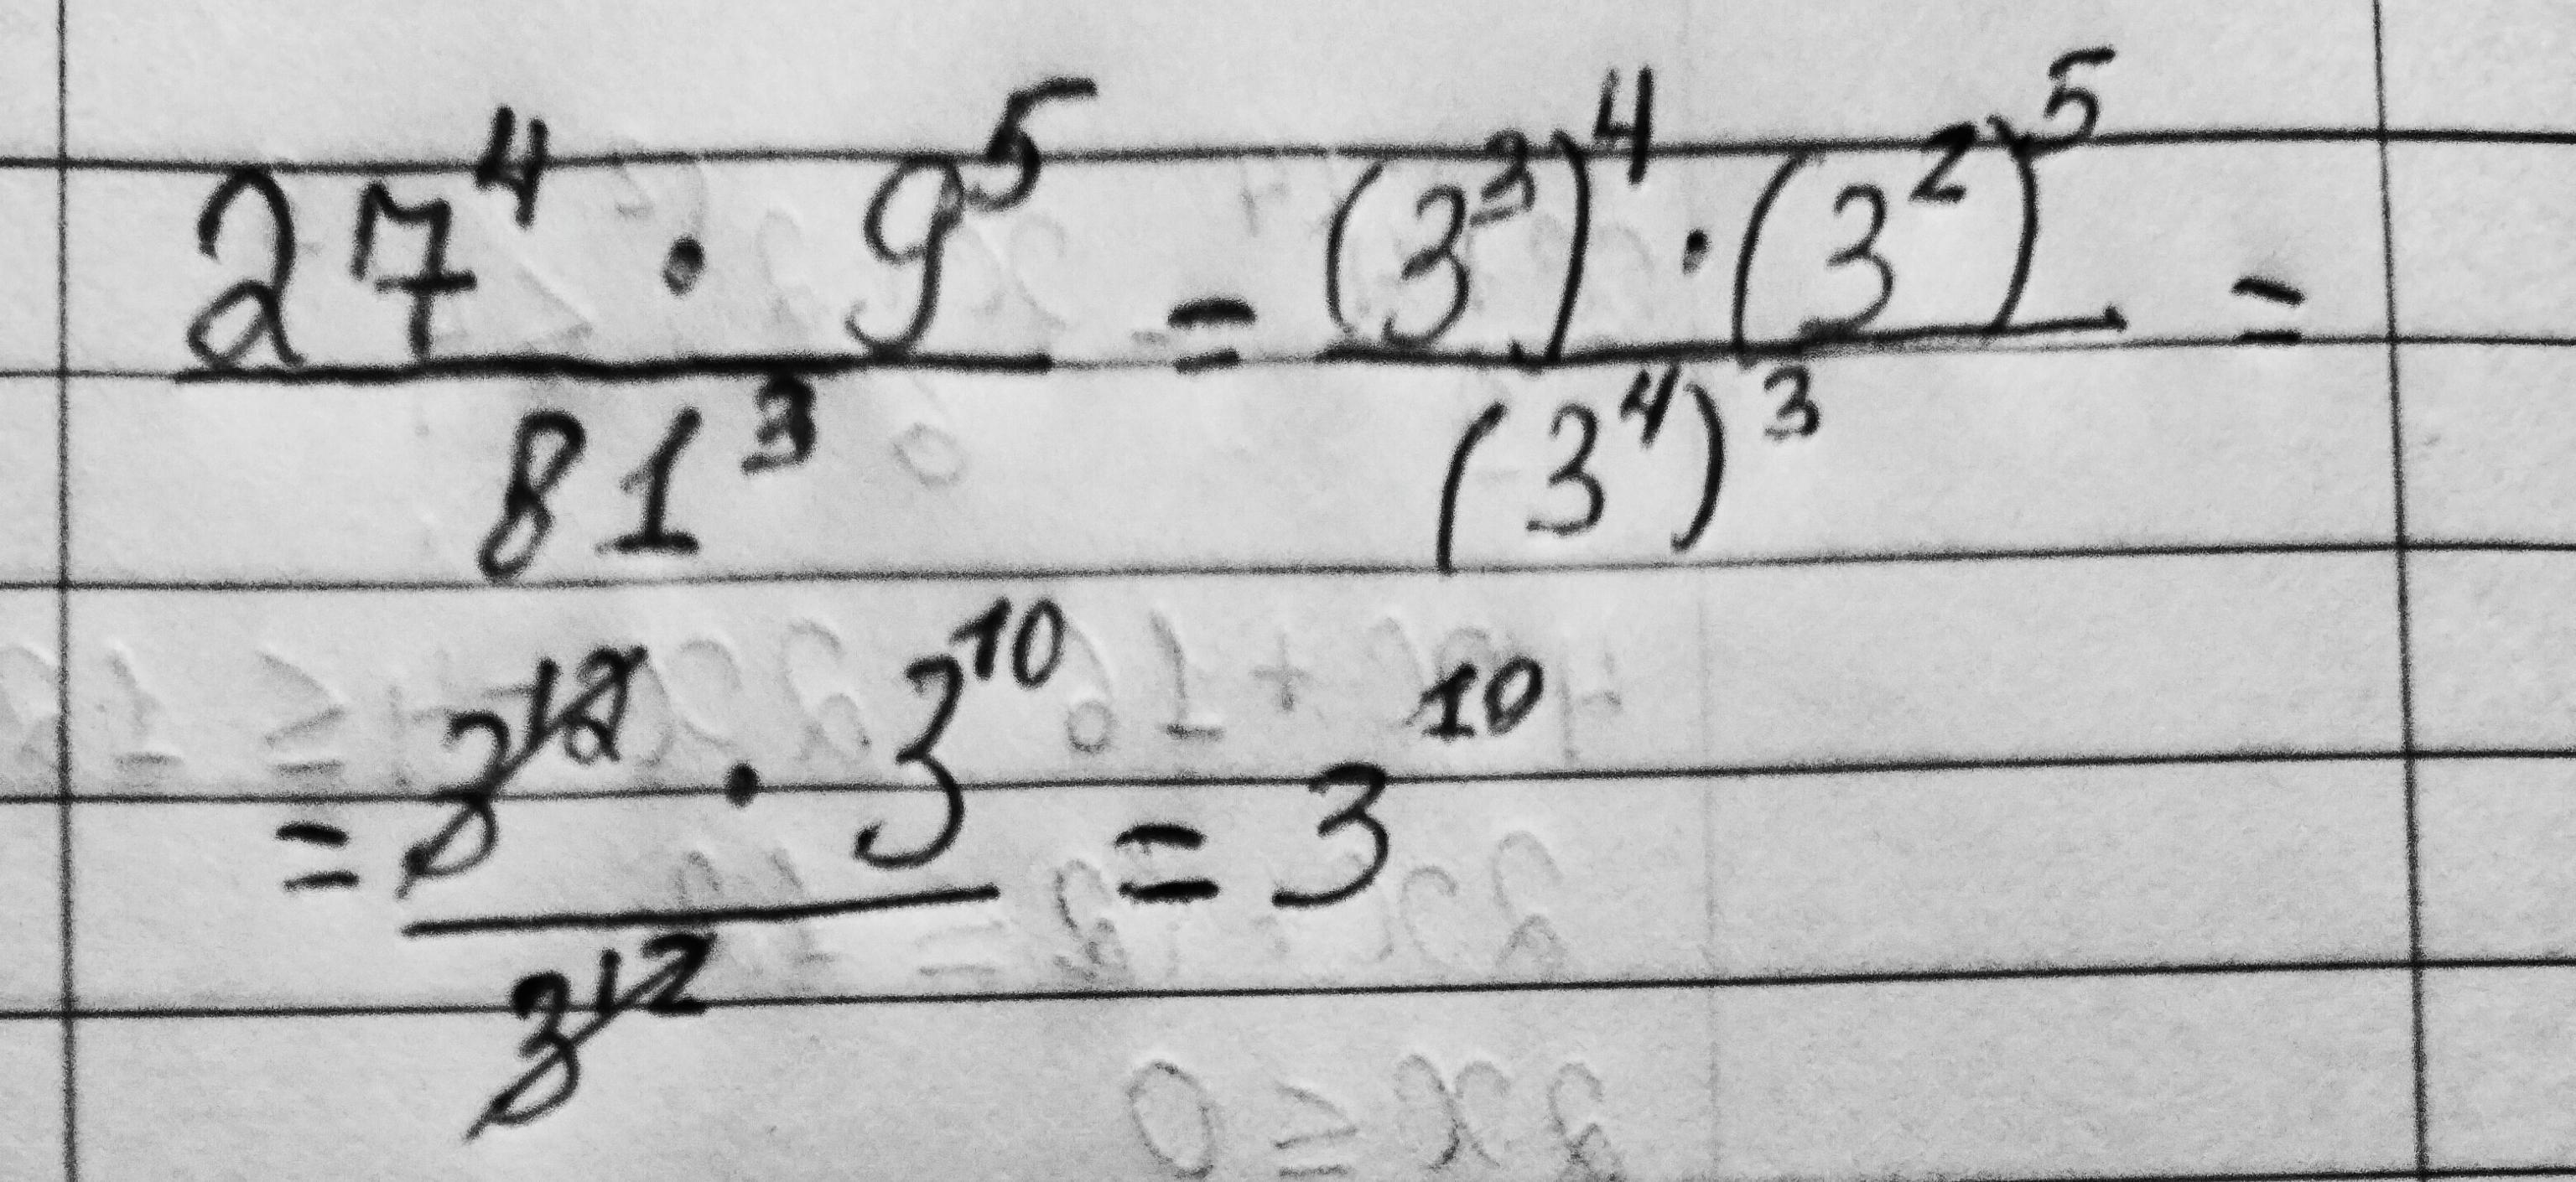 27⁴ · 9⁵ / 81³ = (3³)⁴ · (3²)⁵ / (3⁴)³ =
= 3¹² · 3¹⁰ / 3¹² = 3¹⁰